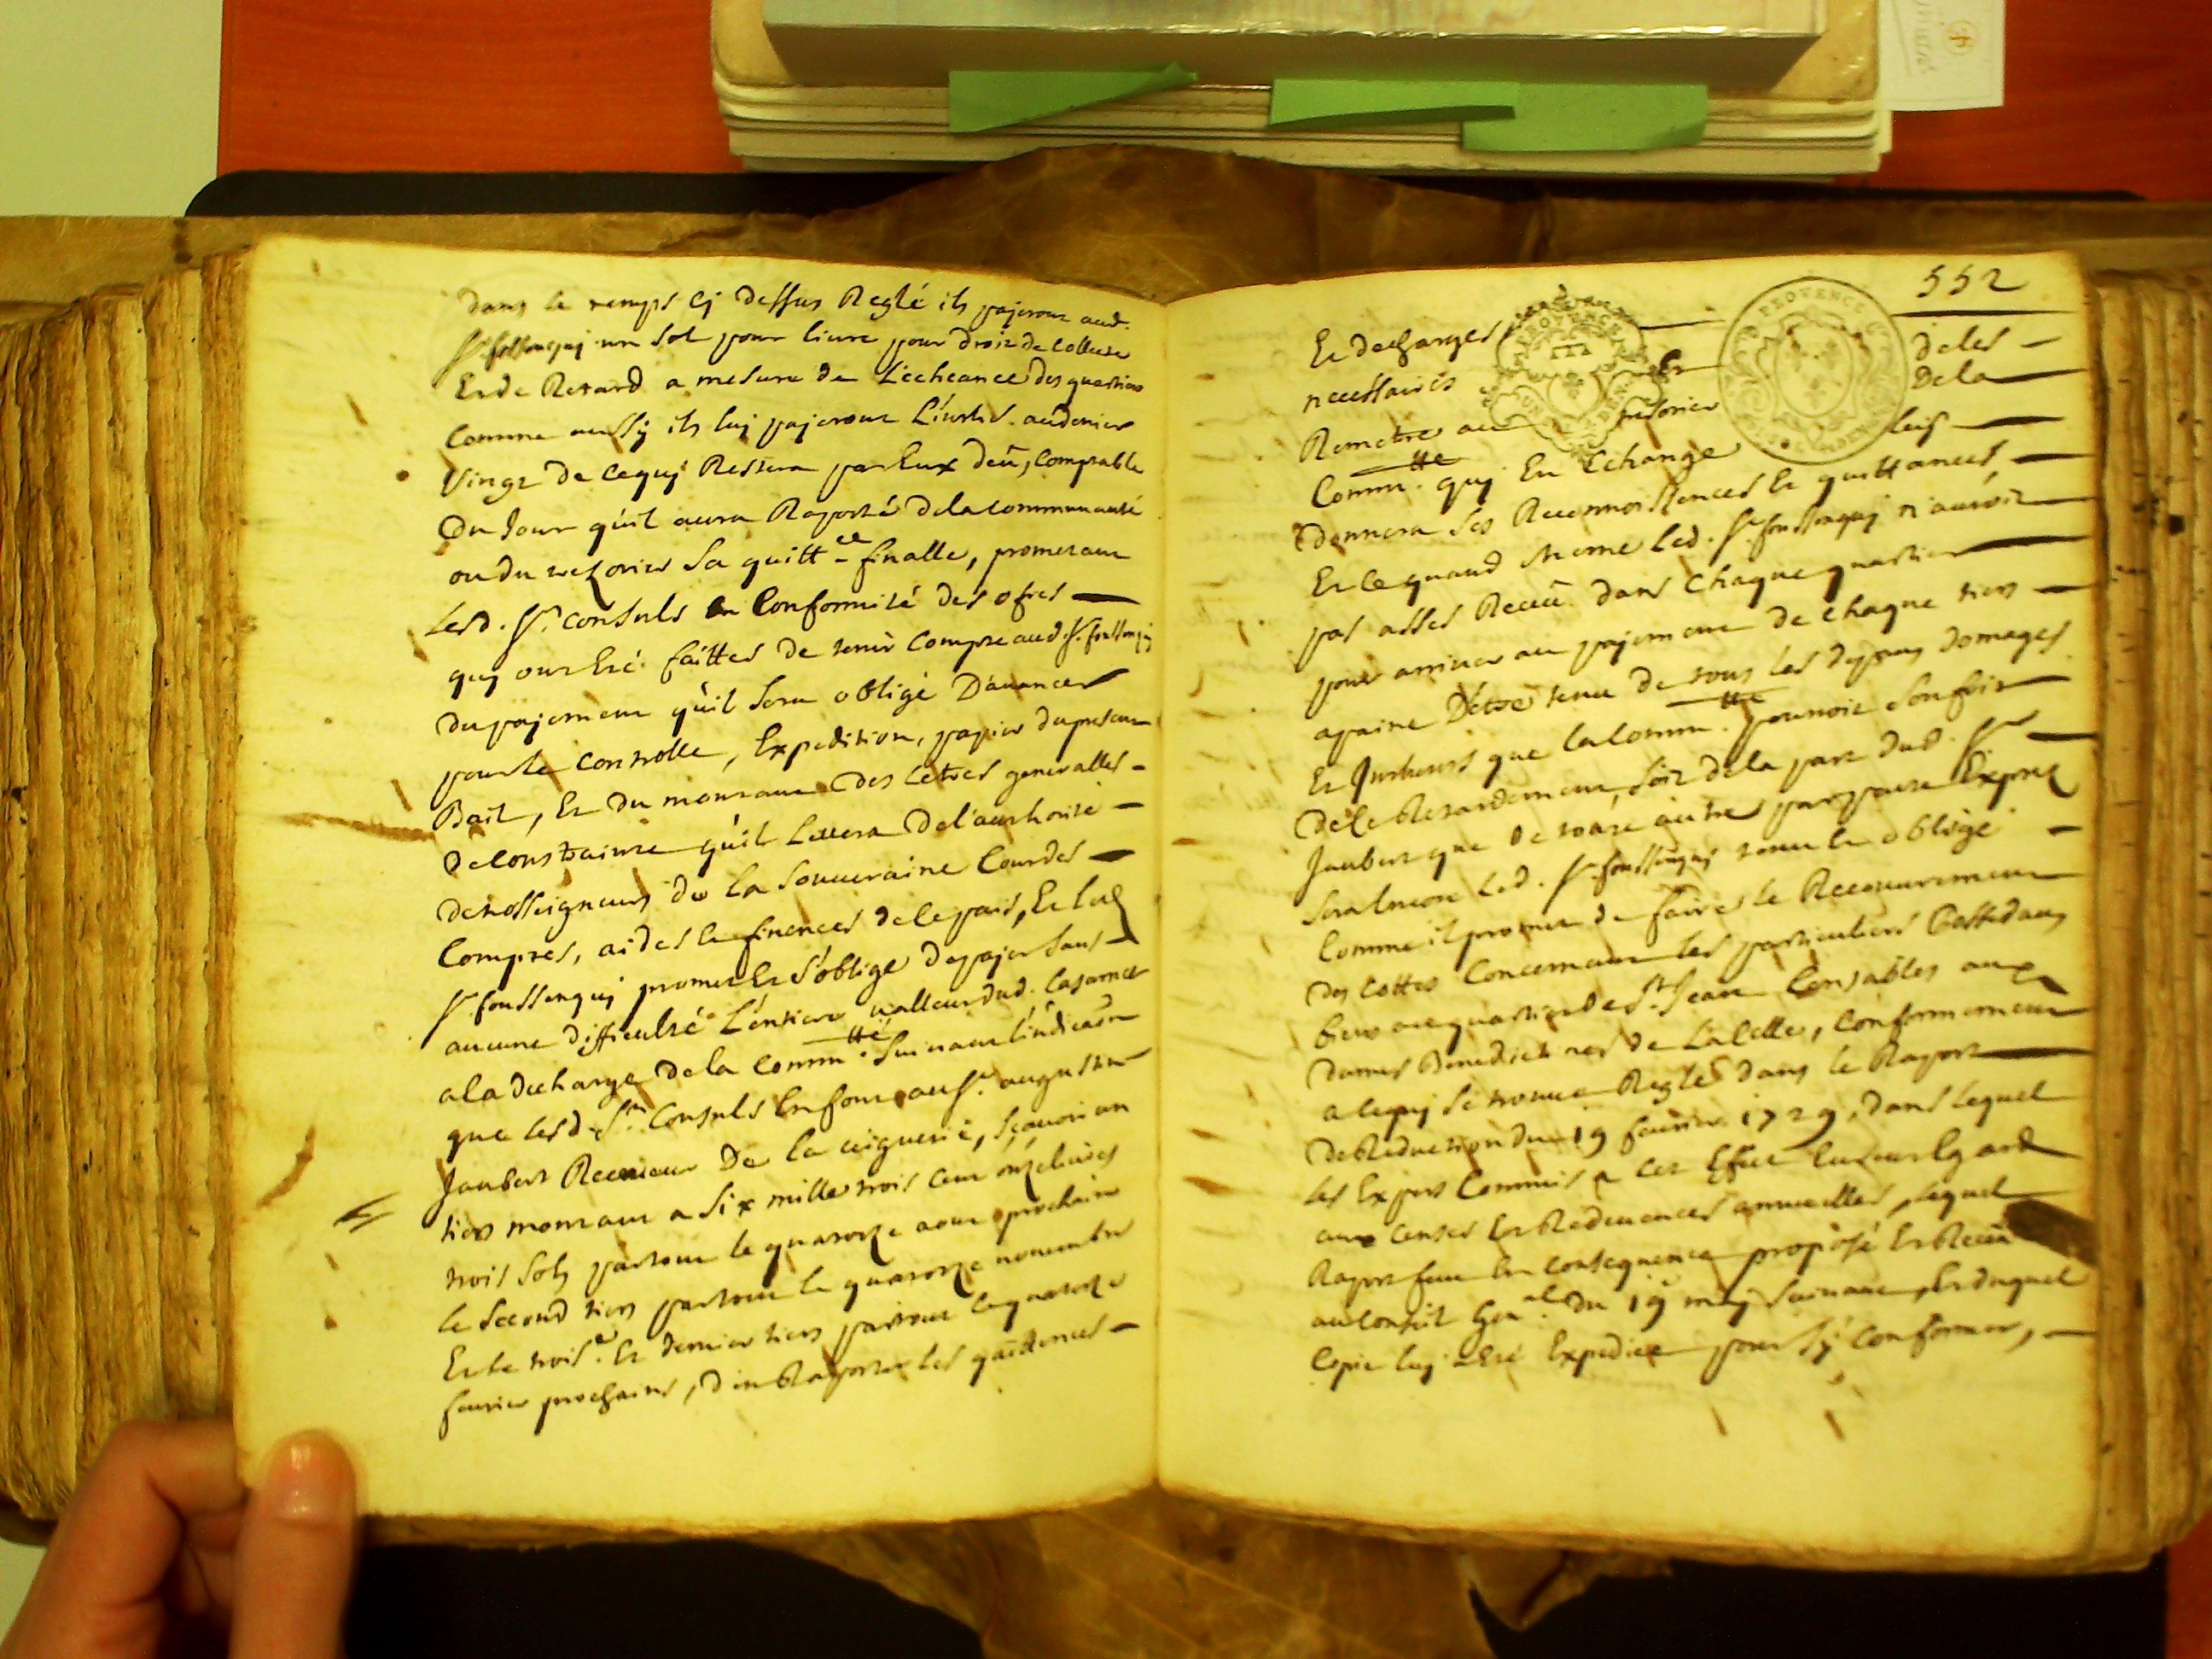 dans le temps cy dessus Reglé ils payeront aud.
Sr. foussenquy un sol pour livre pour droit de collecte
Et de Retard a mesure de L'echeance des quartiers
Comme aussy ils luy payeront L'interest au denier
Vingt de ce quy Restera par Eux deu, comptable
Du Jour qu'il aura Raporté de la communauté
ou du trezorier sa quittce finalle, prometant
Lesd. Srs. consuls En Conformité des ofres
quy ont Eté faittes de tenir Compte aud. Sr. foussenquy
Du payement qu'il sera obligé D'avancer
pour le controlle, Expedition, papier du present
Bail, Et du montant Des Letres generalles
De constrainte qu'il Levera De l'authorité
de nosseigneurs de la souveraine Cour des
Comptes, aides Et finences de ce pais, Et Led.
Sr. foussenquy promet Et s'oblige de payer sans
aucune difficulté L'entiere valleur dud. Casarnet
a la decharge De la Commtté. suivant l'indication
que lesd. Srs. Consuls En font au Sr. augustin
Jaubert Receveur De la viguerie, sçavoir un
tiers montant a six mille trois cent onze livres
trois sols partout le quatorze aout prochain
le second tiers partout le quatorze novembre
Et le troise. Et dernier tiers partout le quatorze
fevrier prochains, d'en Raporter les quittences
552
Et decharges
necessaires Et de les
Remetre au tresorier De la
Commtté. quy En Echange luy
Donnera ses Reconnoissences Et quittances,
Et ce quand meme Led. Sr. foussenquy n'auroit
pas asses Receu dans chaque quartier
pour arriver au payement de chaque tiers
a paine D'etre tenu de tous les depans domages
Et Interests que la Commtté. pouroit soufrir
De ce Retardement, soit de la part dud. Sr.
Jaubert que de toute autre par pacte Exprez
Sera Encore Led. Sr. foussenquy tenu Et obligé
Comme il promet de faire le Recouvrement
Des Cottes Concernant les particuliers Possedants
biens au quartier de St. Jean Censables aux
Dames Benedictines de La Celle, Conformement
a ce quy se trouve Reglé dans le Raport
De Reduction du 19 fevrier 1729, dans lequel
les Experts Commis a cet Effet Eurent Egard
aux Censes Et Redevences annuelles, lequel
Raport fut En consequence proposé Et Receu
au Conseil Genal. du 19 may suivant, Et duquel
Copie luy a Eté Expediée pour s'y conformer,